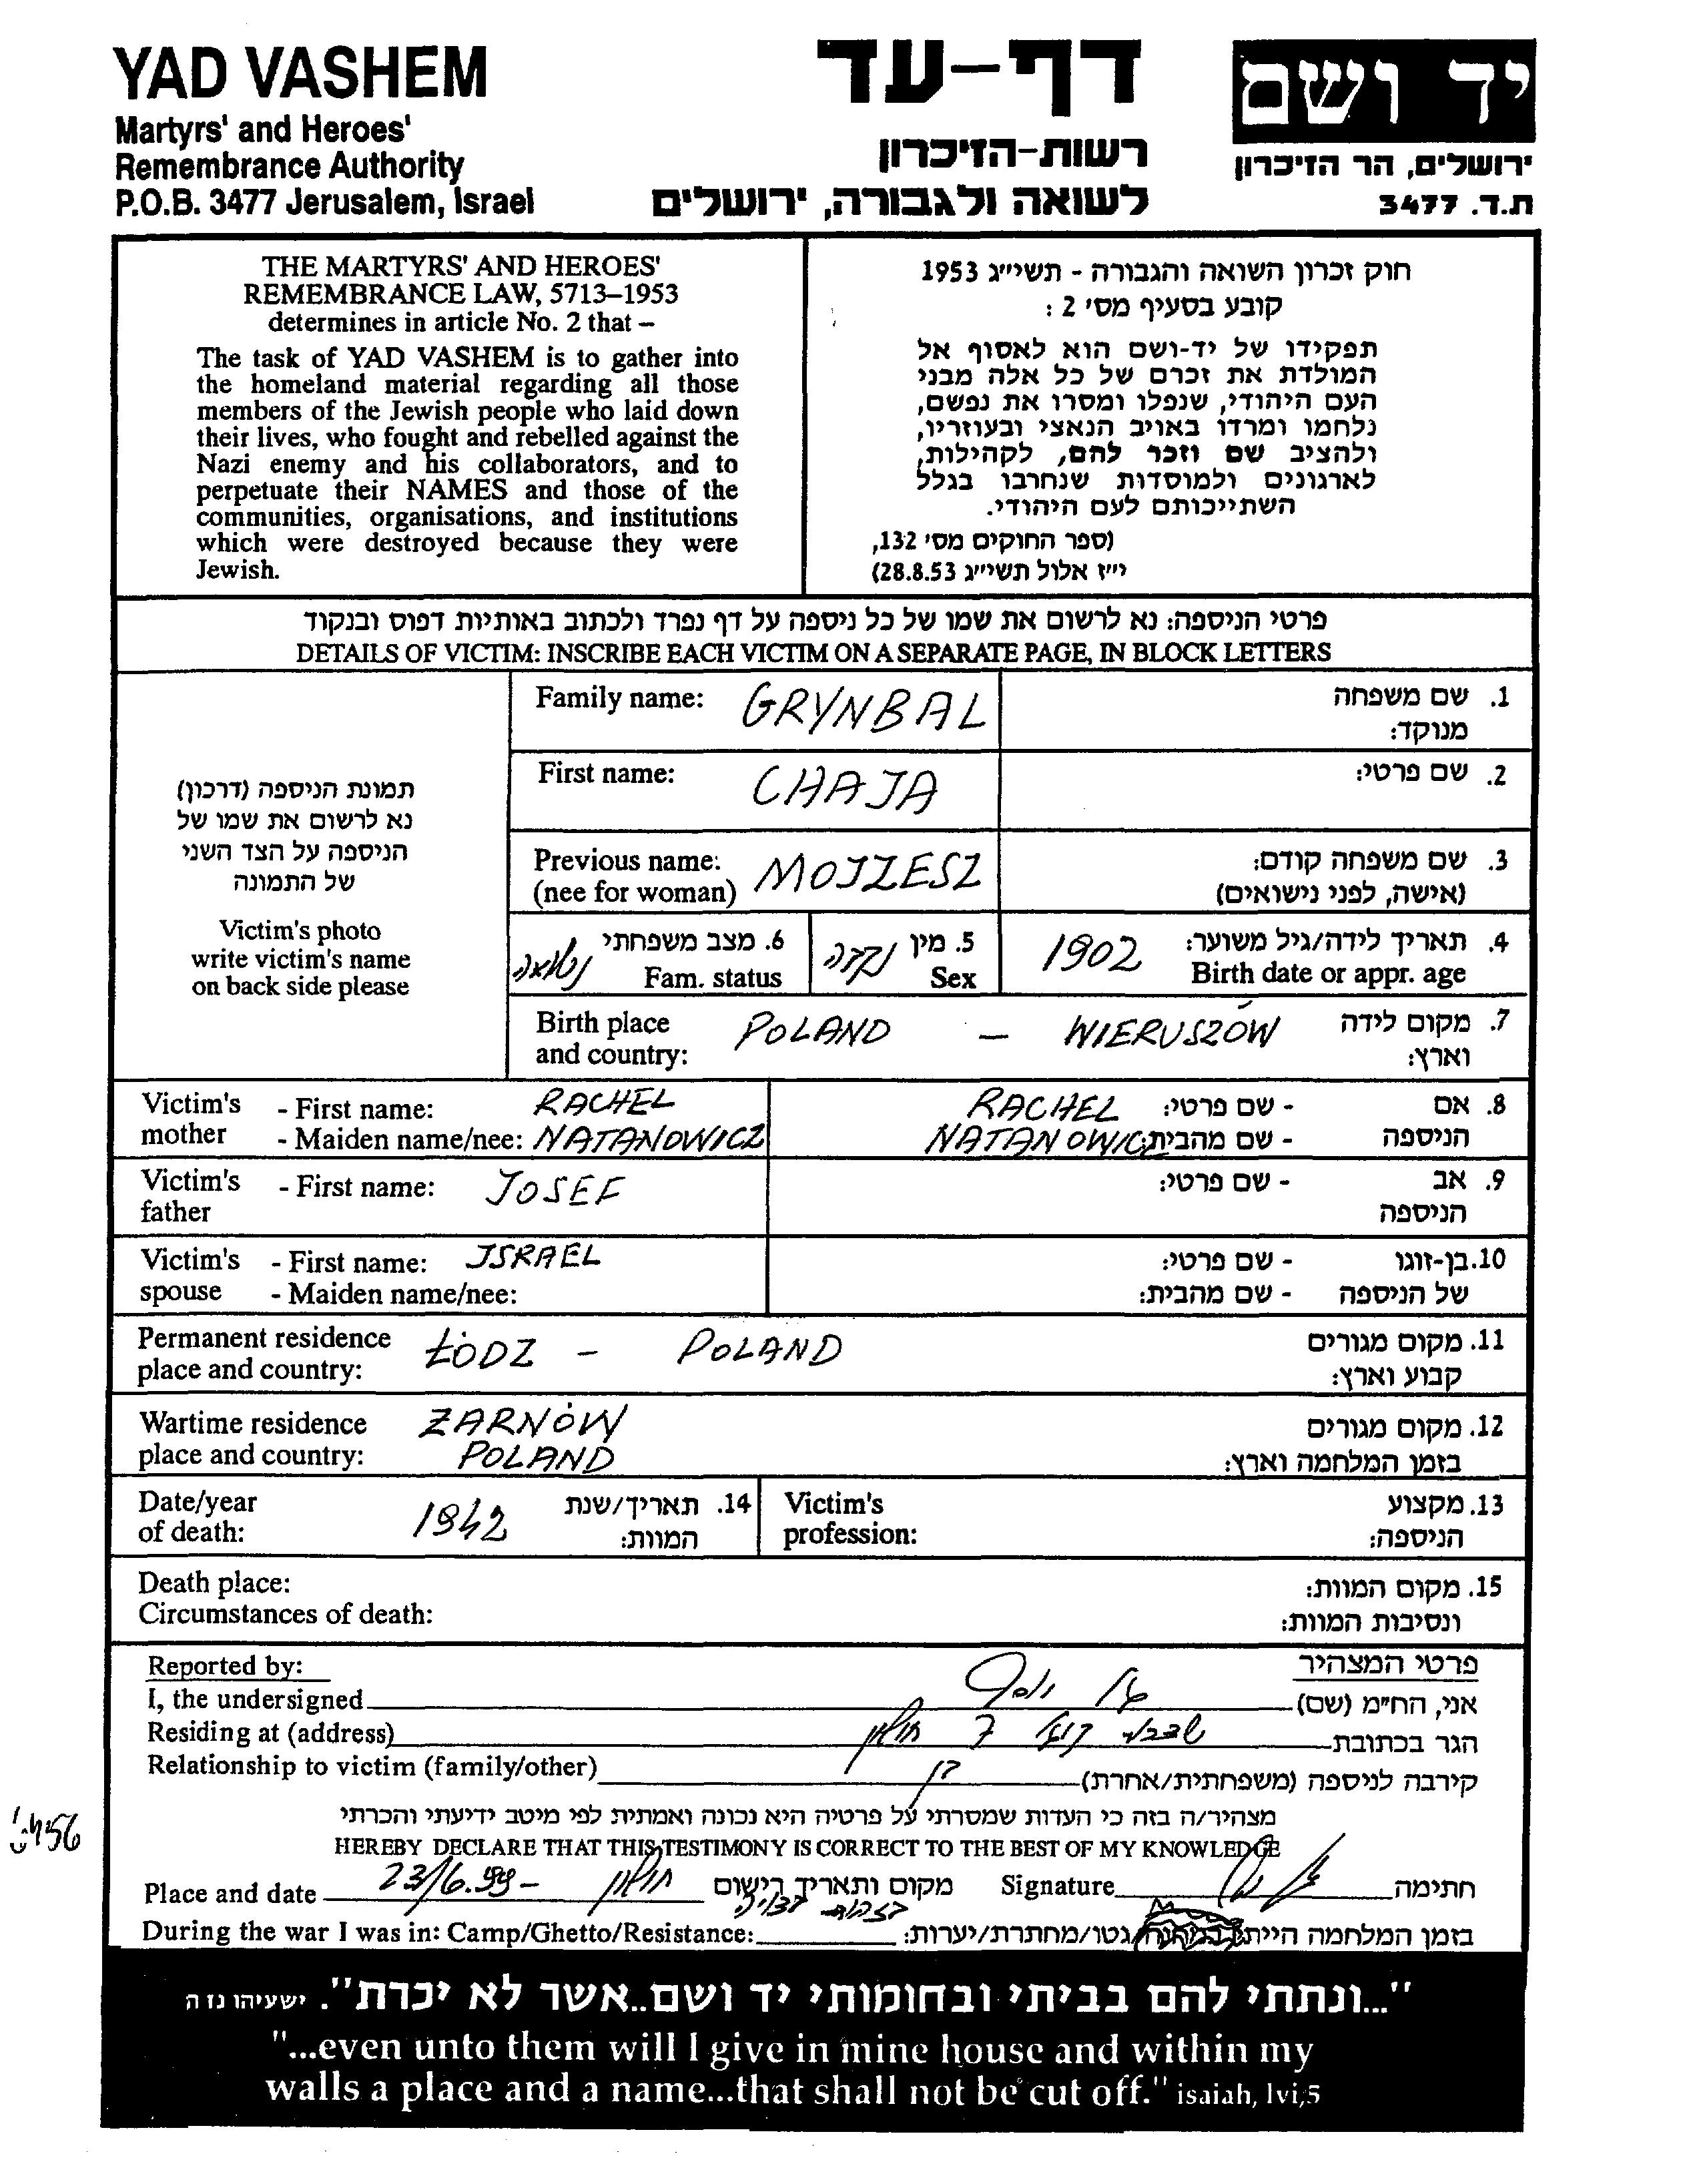 YAD VASHEM
Martyrs' and Heroes'
Remembrance Authority
P.O.B. 3477 Jerusalem, Israel
דף-עד
רשות-הזיכרון
לשואה ולגבורה, ירושלים
יד ושם
ירושלים, הר הזיכרון
ת.ד. 3477
THE MARTYRS' AND HEROES'
REMEMBRANCE LAW, 5713–1953
determines in article No. 2 that –
The task of YAD VASHEM is to gather into
the homeland material regarding all those
members of the Jewish people who laid down
their lives, who fought and rebelled against the
Nazi enemy and his collaborators, and to
perpetuate their NAMES and those of the
communities, organisations, and institutions
which were destroyed because they were
Jewish.
חוק זכרון השואה והגבורה - תשי״ג 1953
קובע בסעיף מס׳ 2 :
תפקידו של יד-ושם הוא לאסוף אל
המולדת את זכרם של כל אלה מבני
העם היהודי, שנפלו ומסרו את נפשם,
נלחמו ומרדו באויב הנאצי ובעוזריו,
ולהציב שם וזכר להם, לקהילות,
לארגונים ולמוסדות שנחרבו בגלל
השתייכותם לעם היהודי.
(ספר החוקים מס׳ 132,
י״ז אלול תשי״ג 28.8.53)
פרטי הניספה: נא לרשום את שמו של כל ניספה על דף נפרד ולכתוב באותיות דפוס ובנקוד
DETAILS OF VICTIM: INSCRIBE EACH VICTIM ON A SEPARATE PAGE, IN BLOCK LETTERS
תמונת הניספה (דרכון)
נא לרשום את שמו של
הניספה על הצד השני
של התמונה
Victim's photo
write victim's name
on back side please
Family name: GRYNBAL 1. שם משפחה
מנוקד:
First name: CHAJA 2. שם פרטי:
Previous name: MOJZESZ 3. שם משפחה קודם:
(nee for woman) (אישה, לפני נישואים)
6. מצב משפחתי נשואה 5. מין נקבה 1902 4. תאריך לידה/גיל משוער:
Fam. status Sex Birth date or appr. age
Birth place POLAND – WIERUSZÓW 7. מקום לידה
and country: וארץ:
Victim's - First name: RACHEL RACHEL - שם פרטי: 8. אם
mother - Maiden name/nee: NATANOWICZ NATANOWIC - שם מהבית: הניספה
Victim's - First name: JOSEF - שם פרטי: 9. אב
father הניספה
Victim's - First name: ISRAEL - שם פרטי: 10. בן-זוגו
spouse - Maiden name/nee: - שם מהבית: של הניספה
Permanent residence ŁÓDZ – POLAND 11. מקום מגורים
place and country: קבוע וארץ:
Wartime residence ŻARNÓW 12. מקום מגורים
place and country: POLAND בזמן המלחמה וארץ:
Date/year 1942 14. תאריך/שנת Victim's 13. מקצוע
of death: המוות: profession: הניספה:
Death place: 15. מקום המוות:
Circumstances of death: ונסיבות המוות:
Reported by: פרטי המצהיר
I, the undersigned אני, הח״מ (שם)
Residing at (address) 7 חולון הגר בכתובת
Relationship to victim (family/other) בן קירבה לניספה (משפחתית/אחרת)
מצהיר/ה בזה כי העדות שמסרתי על פרטיה היא נכונה ואמתית לפי מיטב ידיעתי והכרתי
HEREBY DECLARE THAT THIS TESTIMONY IS CORRECT TO THE BEST OF MY KNOWLEDGE
Place and date 23/6.99 – חולון מקום ותאריך רישום Signature חתימה
During the war I was in: Camp/Ghetto/Resistance: בזמן המלחמה הייתי במחנה/גטו/מחתרת/יערות:
"...ונתתי להם בביתי ובחומותי יד ושם..אשר לא יכרת". ישעיהו נז ה
"...even unto them will I give in mine house and within my
walls a place and a name...that shall not be cut off." isaiah, lvi,5